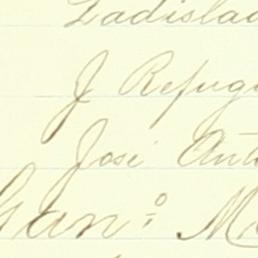 Ladislao
J Refugi
José Anto
Gan.º = M